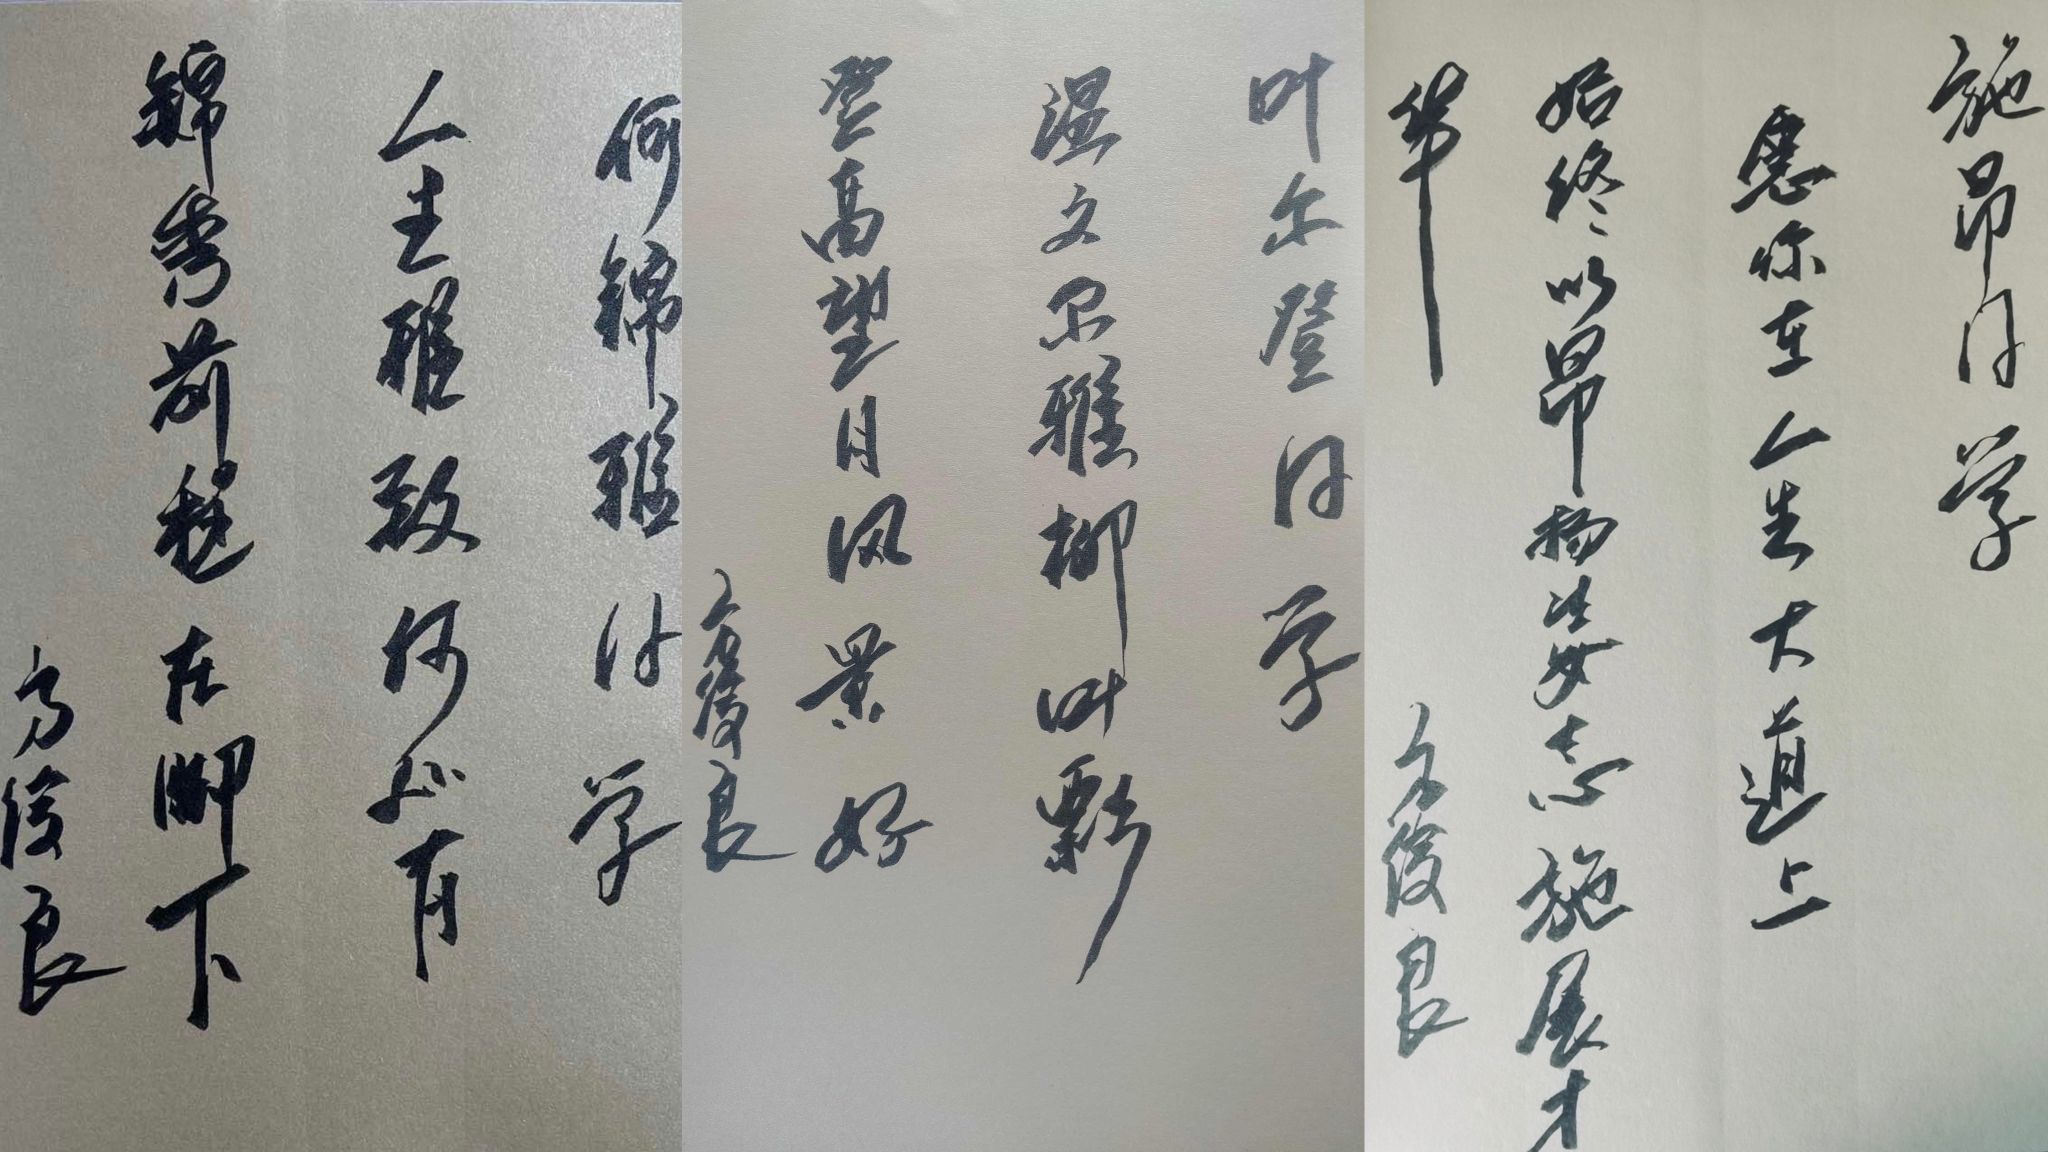 何锦雅同学
人生雅致何必有
锦秀前程在脚下
方俊良
叶尔登同学
温文尔雅柳叶飘
登高望月风景好
方俊良
施昂同学
愿你在人生大道上
始终以昂扬姿志施展才
华
方俊良